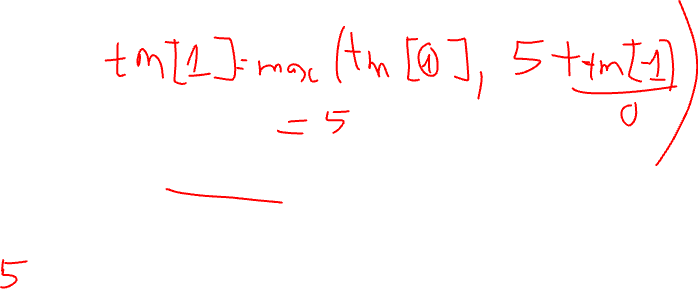 tm[1]=max(tm[0], 5+tm[-1])
0
= 5
5